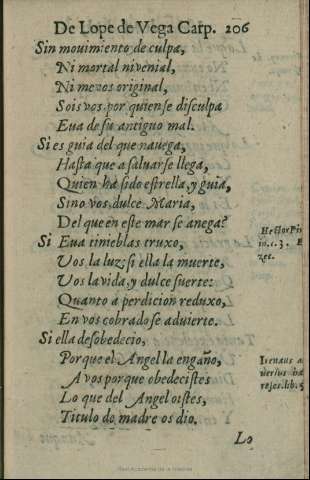 De Lope de Vega Carp. 206
Sin mouimiento de culpa,
Ni mortal ni venial,
Ni menos original,
Sois vos por quien se disculpa
Eua de su antiguo mal.
Si es guia del que nauega,
Hasta que a saluarse llega,
Quien ha sido estrella, y guia,
Sino vos dulce Maria,
Del que en este mar se anega?
Si Eua tinieblas truxo,
Vos la luz; si ella la muerte,
Vos la vida, y dulce suerte:
Quanto a perdicion reduxo,
En vos cobrado se aduierte.
Si ella desobedecio,
Porque el Angel la engaño,
A vos porque obedecistes
Lo que del Angel oistes,
Titulo de madre os dio.
Hector Pin
in. c. 3. E
zet.
Irenæus a
uersus hæ
reses. lib. 5
Lo
Real Academia de la Historia